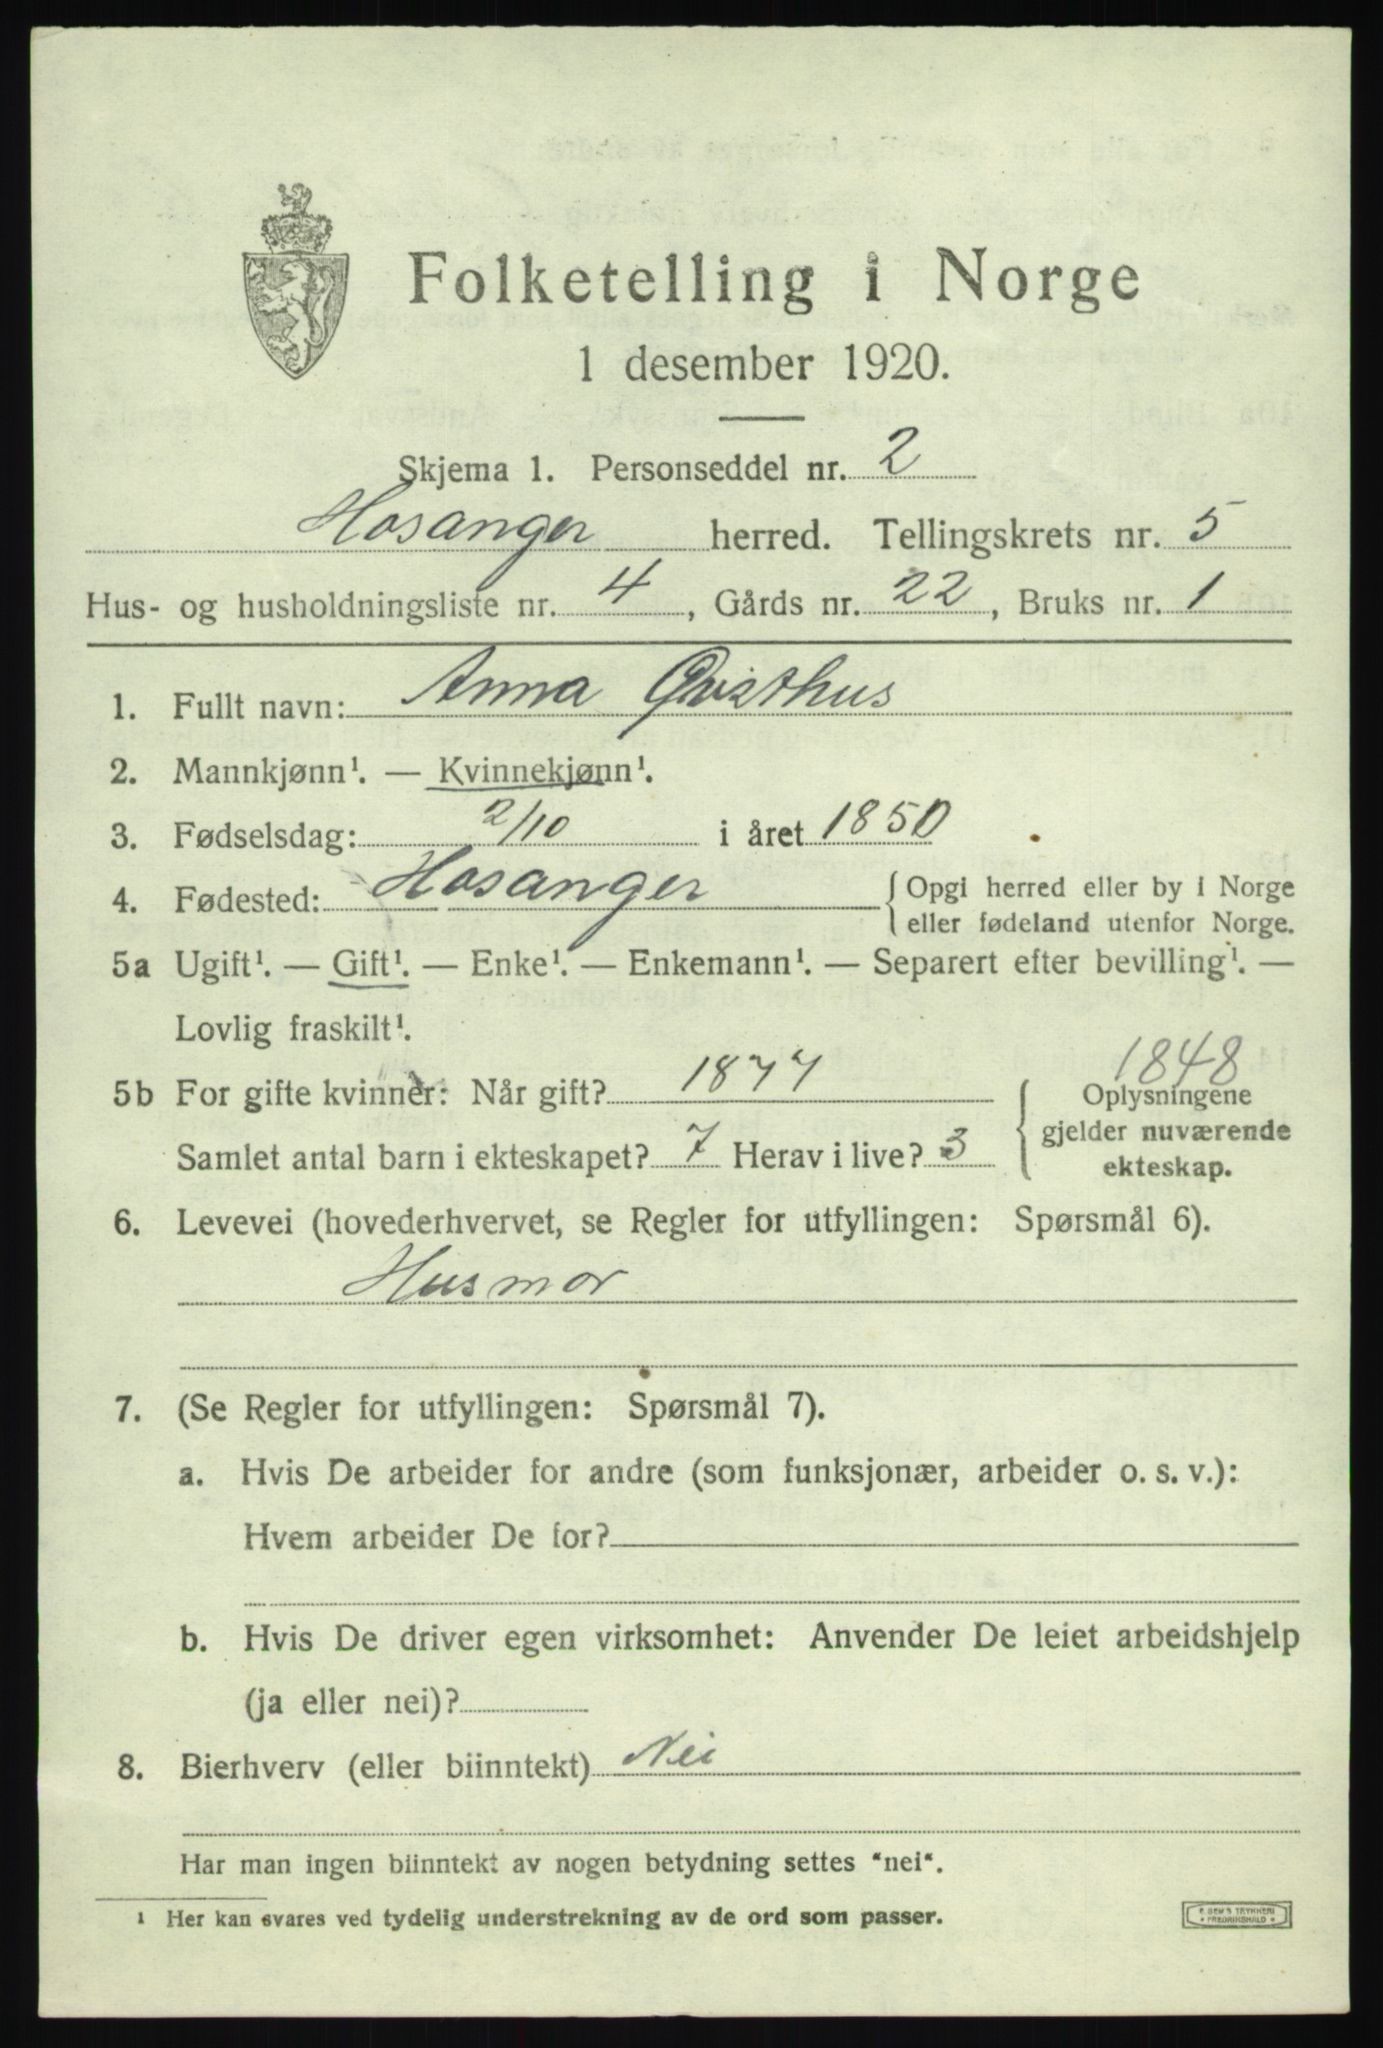 Folketelling i Norge
1 desember 1920.
Skjema 1. Personseddel nr. 2
Hosanger herred. Tellingskrets nr. 5
Hus- og husholdningsliste nr. 4, Gårds nr. 22, Bruks nr. 1
1. Fullt navn: Anna Qvisthus
2. Mannkjønn¹. — Kvinnekjønn¹.
3. Fødselsdag: 2/10 i året 1850
4. Fødested: Hosanger {Opgi herred eller by i Norge
eller fødeland utenfor Norge.
5a Ugift¹. — Gift¹. — Enke¹. — Enkemann¹. — Separert efter bevilling¹. —
Lovlig fraskilt¹.
1848
5b For gifte kvinner: Når gift? 1877 {Oplysningene
gjelder nuværende
Samlet antal barn i ekteskapet? 7 Herav i live? 3
ekteskap.
6. Levevei (hovederhvervet, se Regler for utfyllingen: Spørsmål 6).
Husmor
7. (Se Regler for utfyllingen: Spørsmål 7).
a. Hvis De arbeider for andre (som funksjonær, arbeider o. s. v.):
Hvem arbeider De for?
b. Hvis De driver egen virksomhet: Anvender De leiet arbeidshjelp
(ja eller nei)?
8. Bierhverv (eller biinntekt) Nei
Har man ingen biinntekt av nogen betydning settes "nei".
¹ Her kan svares ved tydelig understrekning av de ord som passer.
TRYKKERI
FREDRIKSHALD